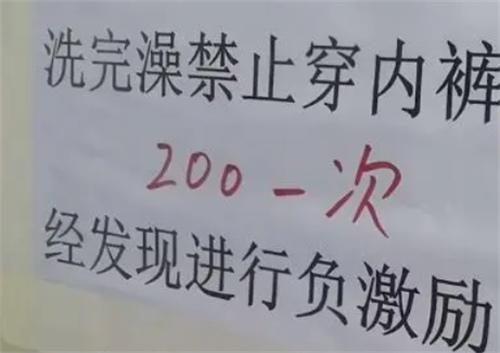 洗完澡禁止穿内裤
200一次
经发现进行负激励